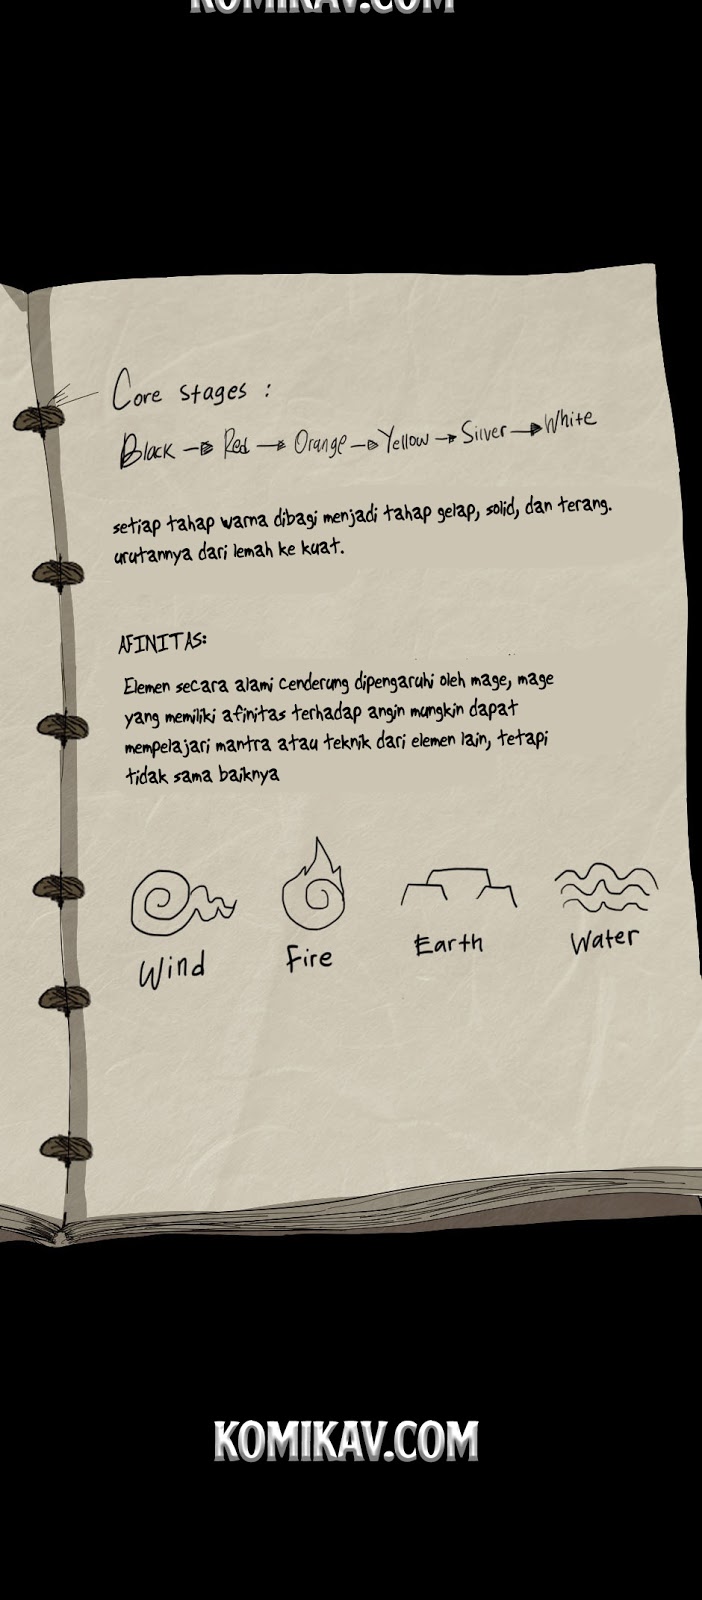 KOMIKAV.COM
Core stages :
Black → Red → Orange → Yellow → Silver → White
setiap tahap warna dibagi menjadi tahap gelap, solid, dan terang.
urutannya dari lemah ke kuat.
AFINITAS:
Elemen secara alami cenderung dipengaruhi oleh mage, mage
yang memiliki afinitas terhadap angin mungkin dapat
mempelajari mantra atau teknik dari elemen lain, tetapi
tidak sama baiknya
Wind Fire Earth Water
KOMIKAV.COM